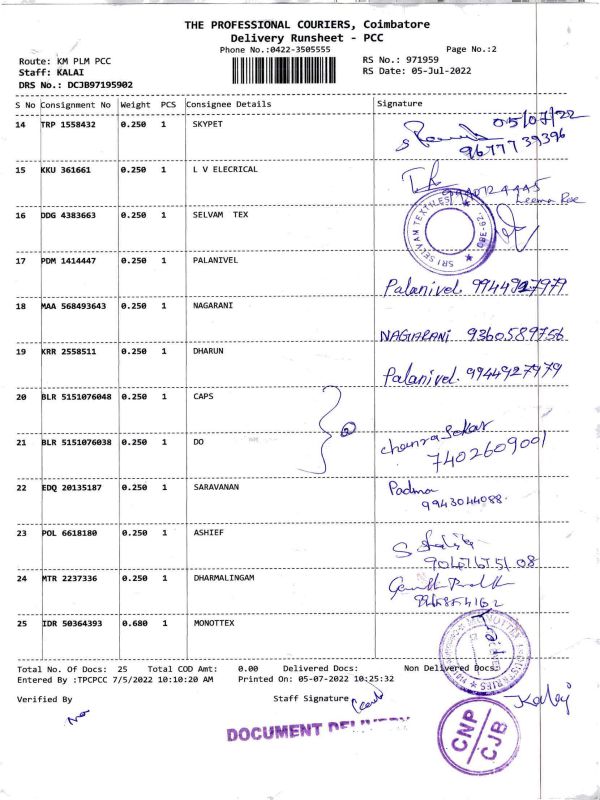 THE PROFESSIONAL COURIERS, Coimbatore
Delivery Runsheet - PCC
Phone No.:0422-3505555
Page No.:2
Route: KM PLM PCC
RS No.: 971959
Staff: KALAI
RS Date: 05-Jul-2022
DRS No.: DCJB97195902
S No Consignment No Weight PCS Consignee Details Signature
14 TRP 1558432 0.250 1 SKYPET
05/07/22
9677739396
15 KKU 361661 0.250 1 L V ELECRICAL
16 DDG 4383663 0.250 1 SELVAM TEX
SRI SELVAM TEXTILES
17 PDM 1414447 0.250 1 PALANIVEL
Palanivel. 9944927979
18 MAA 568493643 0.250 1 NAGARANI
NAGARANI 9360589756
19 KRR 2558511 0.250 1 DHARUN
Palanivel. 9944927979
20 BLR 5151076048 0.250 1 CAPS
21 BLR 5151076038 0.250 1 DO
7402609001
22 EDQ 20135187 0.250 1 SARAVANAN
Padma
9943044088.
23 POL 6618180 0.250 1 ASHIEF
24 MTR 2237336 0.250 1 DHARMALINGAM
25 IDR 50364393 0.680 1 MONOTTEX
Total No. Of Docs: 25 Total COD Amt: 0.00 Delivered Docs: Non Delivered Docs:
Entered By :TPCPCC 7/5/2022 10:10:20 AM Printed On: 05-07-2022 10:25:32
Verified By Staff Signature
Kalai
DOCUMENT DELIVERY
CNP
CJB